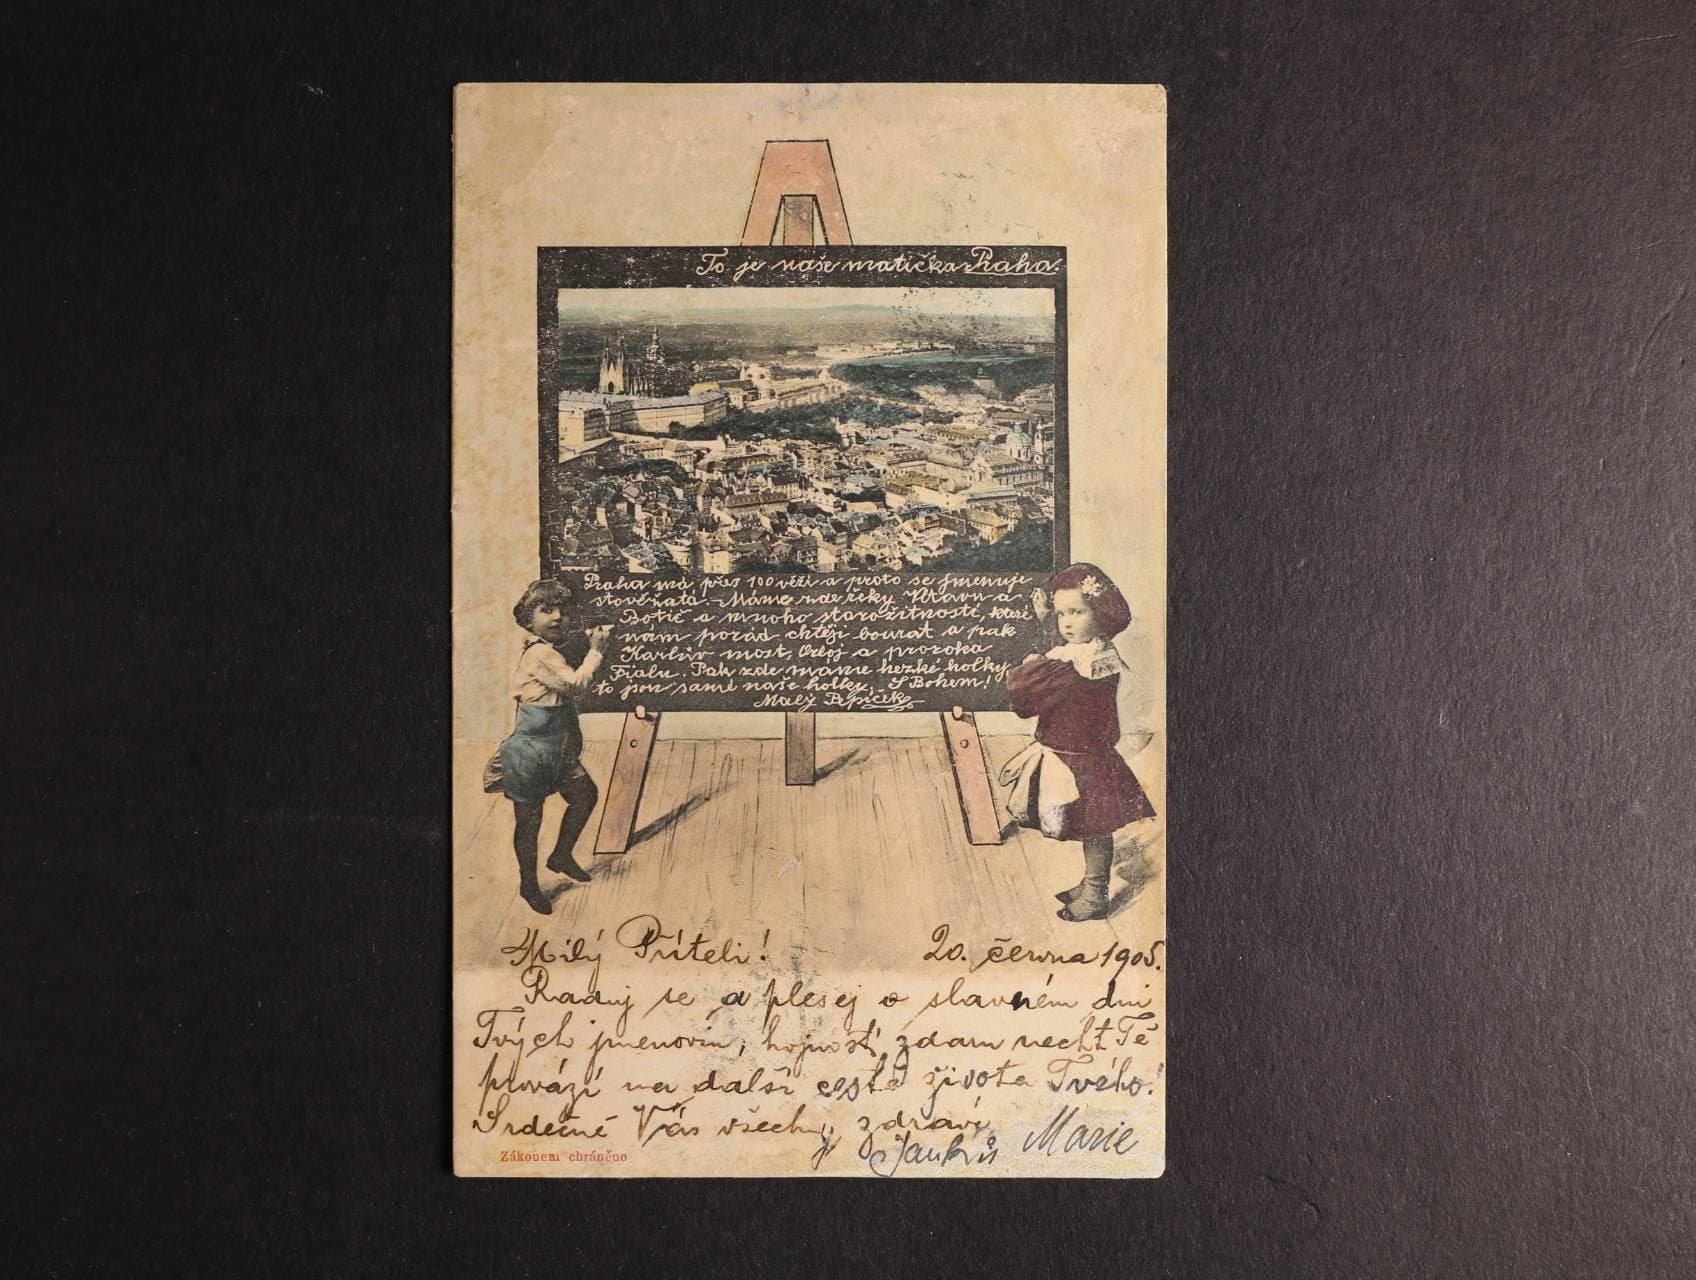 To je naše matička Praha.
Praha má přes 100 věží a proto se jmenuje
stověžatá. – Máme zde řeky Vltavu a
Botič a mnoho starožitností, které
nám pořád chtějí bourat a pak
Karlův most, Orloj a proroka
Fialu. Pak zde máme hezké holky,
to jsou samé naše holky. S Bohem!
Malý Pepíček
Milý Příteli! 20. června 1905.
Raduj se a plesej o slavném dni
Tvých jmenovin, hojnost zdam nechť Tě
provází na další cestě života Tvého!
Srdečně Vás všechny zdraví
Marie
Zákonem chráněno